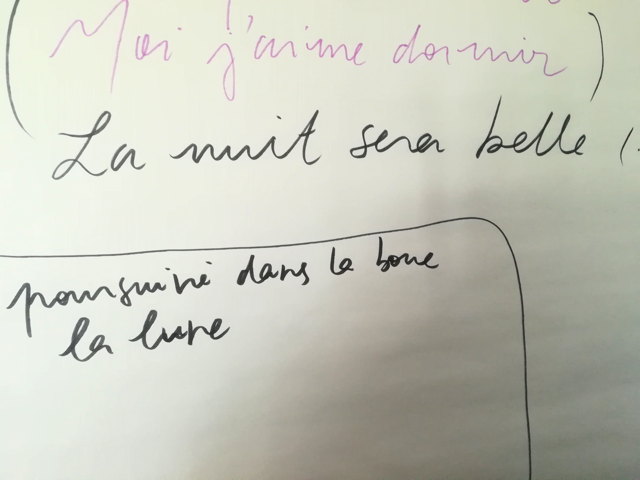 Moi j'aime dormir)
La nuit sera belle (
poursuivi dans la boue
la lune